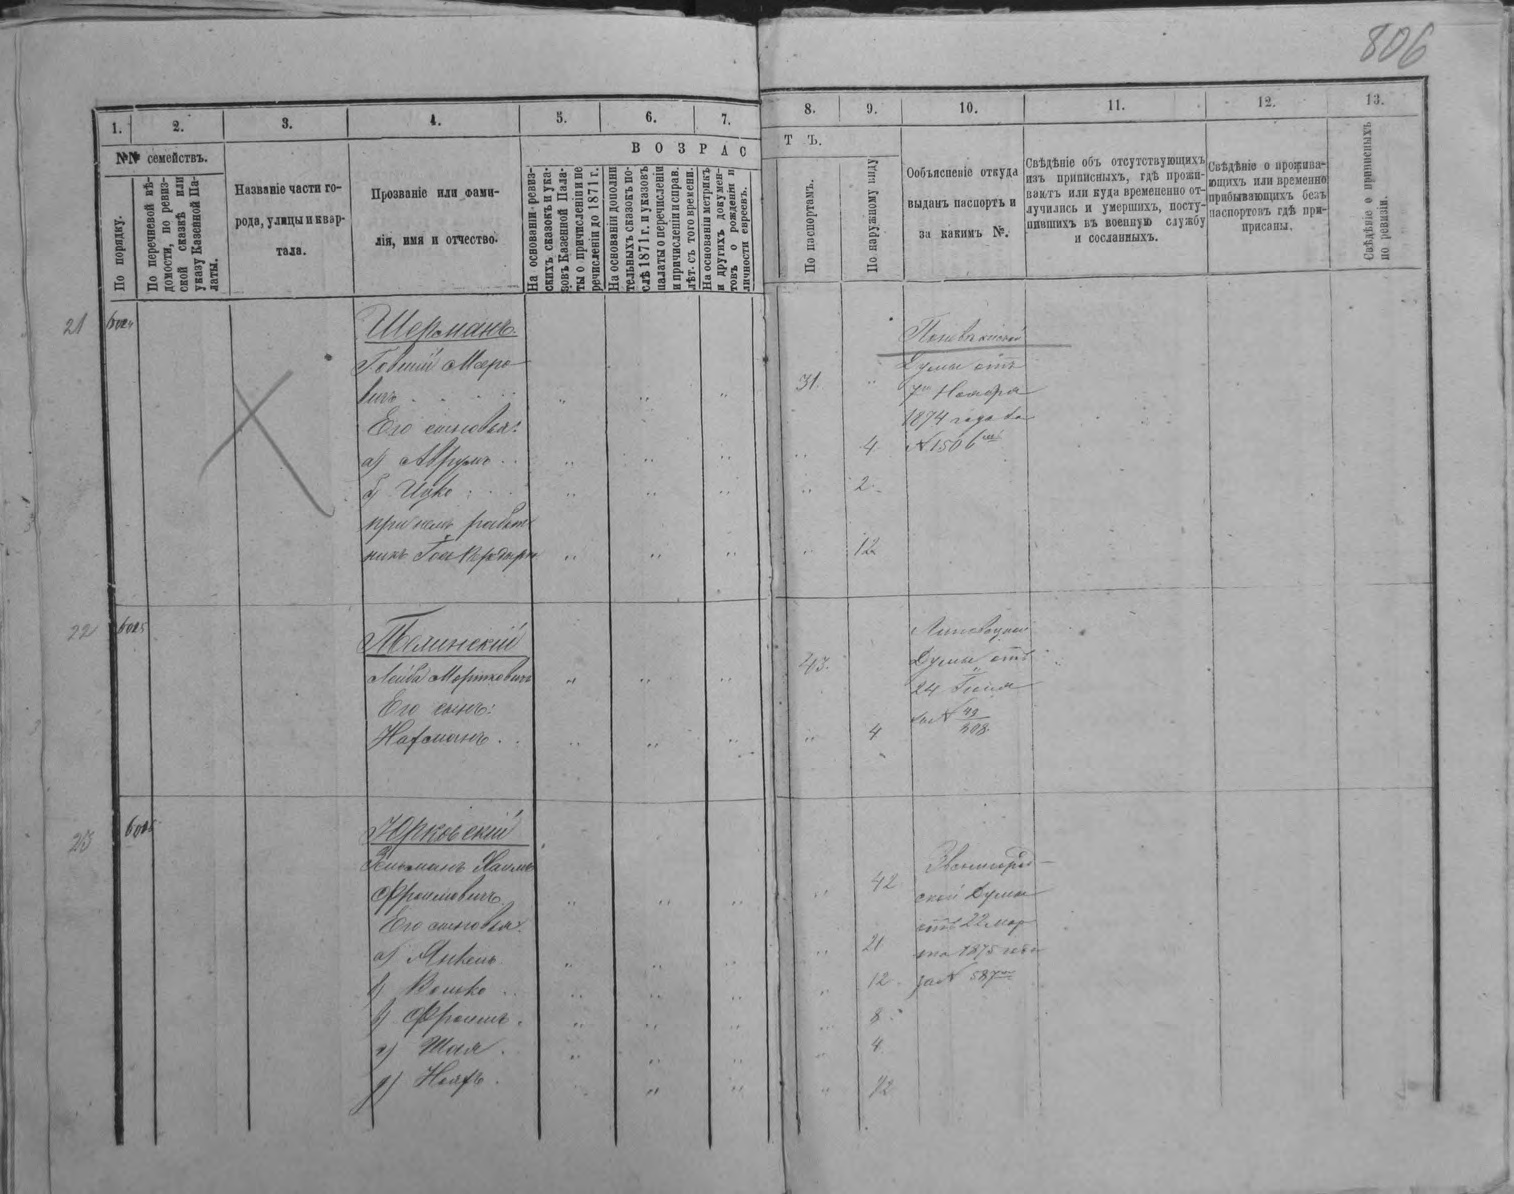 806
1. 2. 3. 4. 5. 6. 7. 8. 9. 10. 11. 12. 13.
№№ семействъ.
По порядку.
По перечневой вѣ-
домости, по ревиз-
ской сказкѣ или
указу Казенной Па-
латы.
Названіе части го-
рода, улицы и квар-
тала.
Прозваніе или фами-
лія, имя и отчество.
ВОЗРАС
Т Ъ.
На основаніи ревиз-
скихъ сказокъ и ука-
зовъ Казенной Пала-
ты о причисленіи и пе
речисленіи до 1871 г.
На основаніи дополни
тельныхъ сказокъ по-
слѣ 1871 г. и указовъ
палаты о перечисленіи
и причисленіи и справ.
лѣт. съ того времени.
На основаніи метрикъ
и другихъ докумен-
товъ о рожденіи и
личности евреевъ.
По паспортамъ.
По наружному виду
Объясненіе откуда
выданъ паспортъ и
за какимъ №.
Свѣдѣніе объ отсутствующихъ
изъ приписныхъ, гдѣ прожи-
ваютъ или куда временено от-
лучились и умершихъ, посту-
пившихъ въ военную службу
и сосланныхъ.
Свѣдѣніе о прожива-
ющихъ или временно
прибывающихъ безъ
паспортовъ гдѣ при-
присаны.
Свѣдѣніе о приписныхъ
по ревизіи.
21 6024
Шерманъ.
Мееро
вичъ 31
Его сыновья:
а) Аврумъ 4
б) Ицко 2
при немъ работ
никъ 12
Думы отъ
7го Ноября
1874 года за
№ 1506
22 6025
Телинскій
Лейба Мортковичъ 43.
Его сынъ:
Нахманъ 4
Липовецкой
Думы отъ
24 Іюля
за № 49/308
23
Юрковскій
Хаимъ
Фроимовичъ 42
Его сыновья:
а) Янкель 21
б) Волько 12
в) Фроимъ 8
г) Шая 4
д) 1/2
Звенигород-
ской Думы
отъ 22 мар
та 1875 года
за № 587